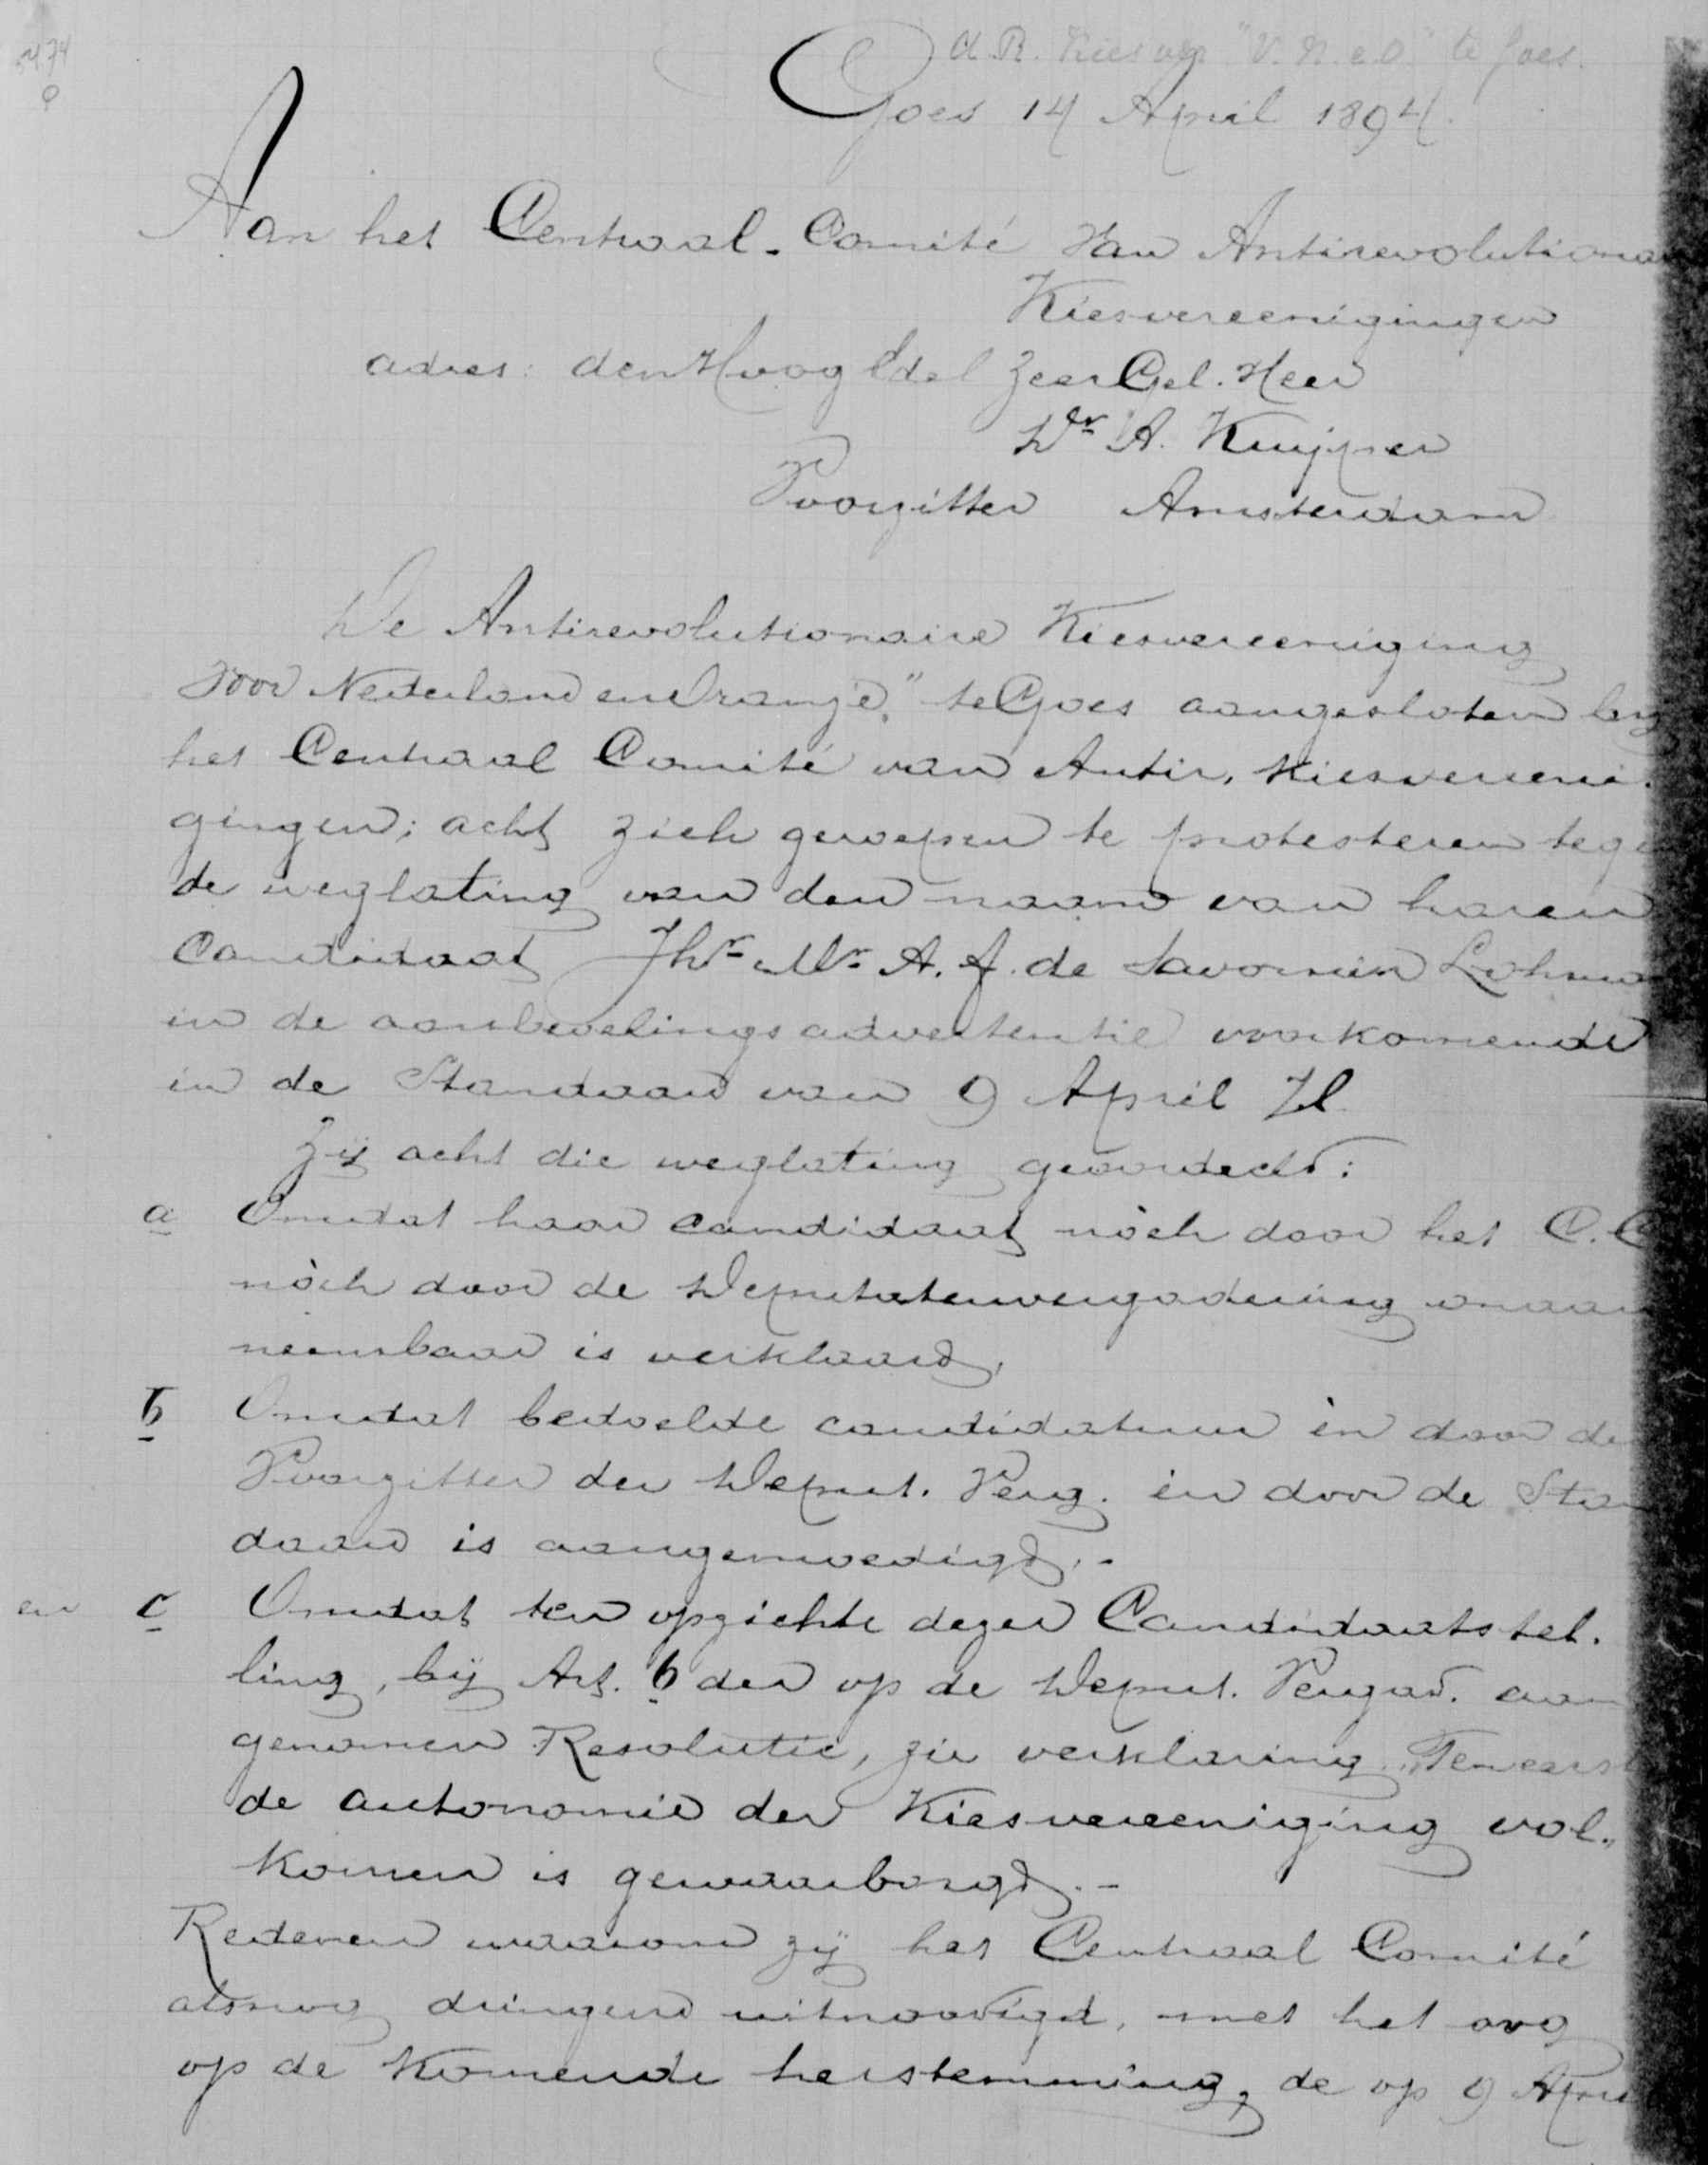 5474
A.R. Kiesver "V.N.e.O" te Goes.
Goes 14 April 1894.
Aan het Centraal-Comité van Antirevolutiona
Kiesvereenigingen
adres: den HoogEdel ZeerGel. Heer
Dr A. Kuijper
Voorzitter Amsterdam
De Antirevolutionaire Kiesvereeniging
voor Nederland en Oranje," te Goes aangesloten bij
het Centraal Comité van Antir. Kiesvereeni-
gingen; acht zich geroepen te protesteren tege
de weglating van den naam van haren
Candidaat Jhr Mr A. F. de Savornin Lohma
in de aanbevelingsadvertentie voorkomende
in de Standaard van 9 April Jl.
Zij acht die weglating
a Omdat haar candidaat nòch door het C.C
nòch door de Deputatenvergadering onaan
neembaar is verklaard,
b Omdat bedoelde candidatuur èn door de
Voorzitter der Deput. Verg. èn door de Stan
daard is aangemoedigd.-
en c Omdat ten opzichte dezer Candidaatstel-
ling, bij Art. 6 der op de Deput. Vergad. aan
genomen Resolutie, zie verklaring "Ten eerst
de autonomie der Kiesvereeniging vol-
komen is gewaarborgd.-
Redenen waarom zij het Centraal Comité
alsnog dringend uitnoodigd, met het oog
op de komende herstemming, de op 9 April